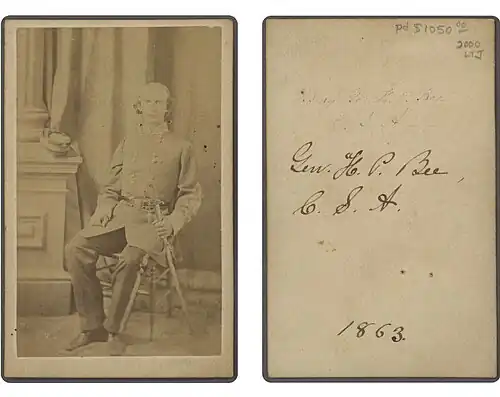 pd $1050 00
2000
LTJ
Gen. H. P. Bee,
C. S. A.
1863.